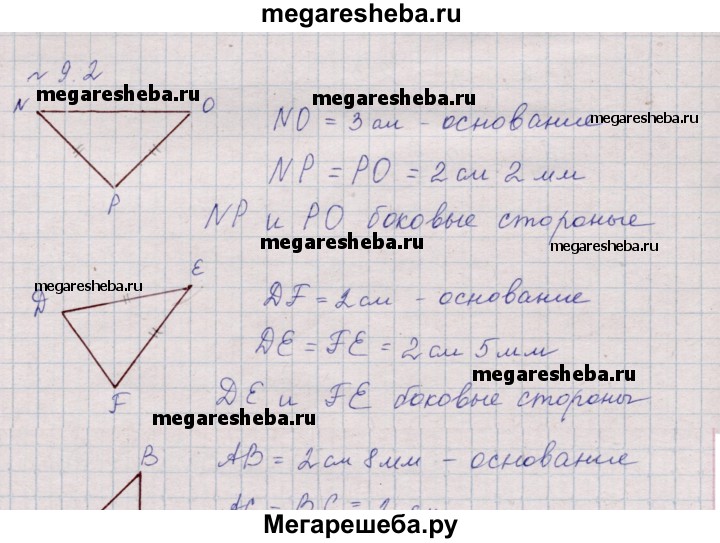 megaresheba.ru
№ 9.2
N O P
megaresheba.ru
megaresheba.ru
megaresheba.ru
NO = 3 см - основание
NP = PO = 2 см 2 мм
NP и PO боковые стороныe
megaresheba.ru
megaresheba.ru
D E F
megaresheba.ru
DF = 2 см - основание
DE = FE = 2 см 5 мм
megaresheba.ru
DE и FE боковые стороны
megaresheba.ru
B
AB = 2 см 8 мм - основание
Мегарешеба.ру